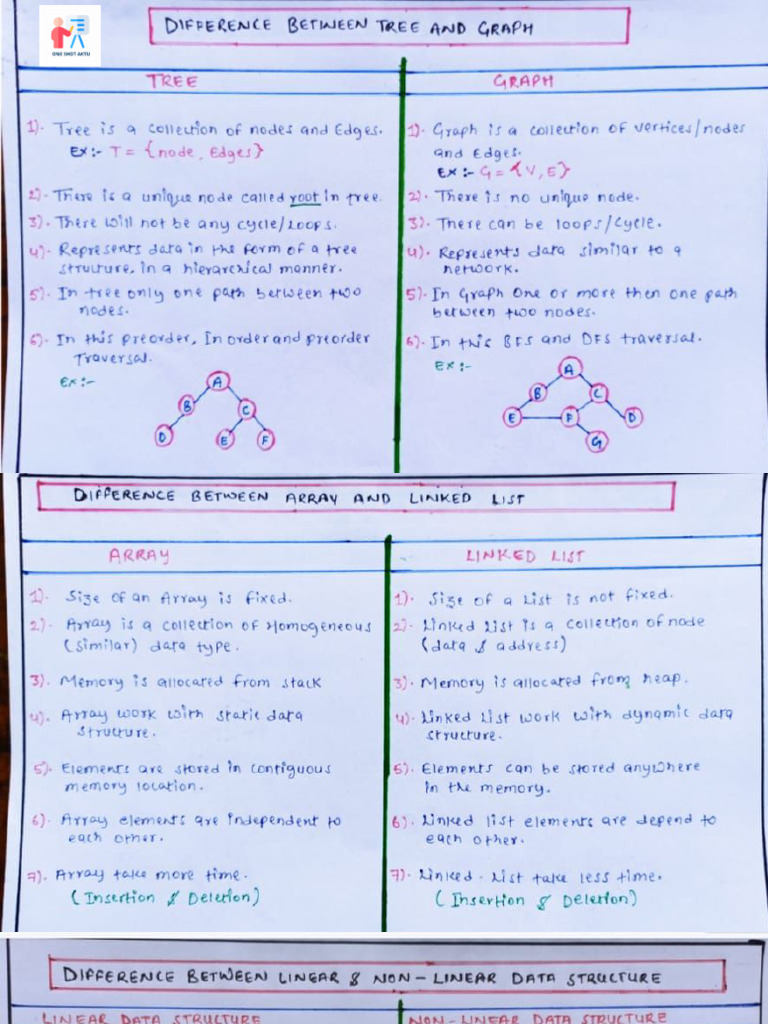 ONE SHOT AKTU
DIFFERENCE BETWEEN TREE AND GRAPH
TREE
1). Tree is a collection of nodes and Edges.
Ex:- T = {node, Edges}
2). There is a unique node called root in tree.
3). There will not be any cycle/Loops.
4). Represents data in the form of a tree
structure, in a hierarchical manner.
5). In tree only one path between two
nodes.
6). In this preorder, In order and preorder
Traversal.
Ex:-
A
B
C
D
E
F
GRAPH
1). Graph is a collection of vertices/nodes
and Edges.
Ex:- G = {V, E}
2). There is no unique node.
3). There can be loops/cycle.
4). Represents data similar to a
network.
5). In Graph One or more then one path
between two nodes.
6). In this BFS and DFS traversal.
Ex:-
A
B
C
E
F
D
G
DIFFERENCE BETWEEN ARRAY AND LINKED LIST
ARRAY
1). Size of an Array is fixed.
2). Array is a collection of Homogeneous
(similar) data type.
3). Memory is allocated from stack
4). Array work with static data
structure.
5). Elements are stored in contiguous
memory location.
6). Array elements are independent to
each other.
7). Array take more time.
(Insertion & Deletion)
LINKED LIST
1). Size of a List is not fixed.
2). Linked List is a collection of node
(data & address)
3). Memory is allocated from heap.
4). Linked List work with dynamic data
structure.
5). Elements can be stored anywhere
in the memory.
6). Linked list elements are depend to
each other.
7). Linked - List take less time.
(Insertion & Deletion)
DIFFERENCE BETWEEN LINEAR & NON-LINEAR DATA STRUCTURE
LINEAR DATA STRUCTURE
NON-LINEAR DATA STRUCTURE